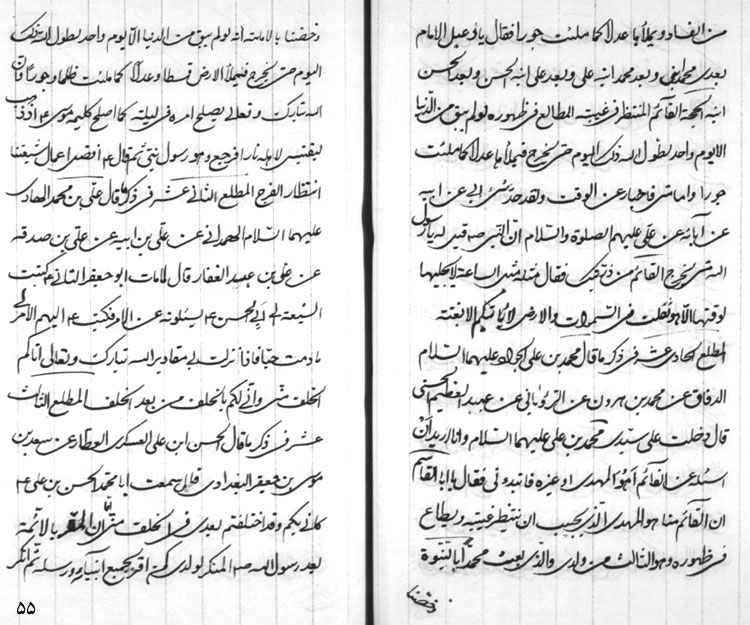 من الفساد ويملأها عدلا كما ملئت جورا فقال يا دعبل الامام
بعدى محمد ابنى وبعد محمد ابنه على وبعد على ابنه الحسن وبعد الحسن
ابنه الحجة القائم المنتظر فى غيبته المطاع فى ظهوره لو لم يبق من الدنيا
الا يوم واحد لطول الله ذلك اليوم حتى يخرج فيملأها عدلا كما ملئت
جورا واما متى فاخبار عن الوقت ولقد حدثنى ابى عن ابيه
عن آبائه عن على عليهم الصلوة والسلام ان النبى ص قيل له يا رسول
الله متى يخرج القائم من ذريتك فقال مثله مثل الساعة لا يجليها
لوقتها الا هو ثقلت فى السموات والارض لا يأتيكم الا بغتة
المطلع الحادى عشر فى ذكر ما قال محمد بن على الجواد عليهما السلام
الدقاق عن محمد بن هرون عن الرويانى عن عبد العظيم الحسنى
قال دخلت على سيدى محمد بن على عليهما السلام وانا اريد ان
اسئله عن القائم اهو المهدى او غيره فابتدءنى فقال يا ابا القاسم
ان القائم منا هو المهدى الذى يجب ان ينتظر فى غيبته ويطاع
فى ظهوره وهو الثالث من ولدى والذى بعث محمدا بالنبوة
وخصنا
وخصنا بالامامة انه لو لم يبق من الدنيا الا يوم واحد لطول الله ذلك
اليوم حتى يخرج فيملأ الارض قسطا وعدلا كما ملئت ظلما وجورا وان
الله تبارك وتعالى يصلح امره فى ليلة كما اصلح كليمه موسى ع اذ ذهب
ليقتبس لاهله نارا فرجع وهو رسول نبى ثم قال ع افضل اعمال شيعتنا
انتظار الفرج المطلع الثانى عشر فى ذكر ما قال على بن محمد الهادى
عليهما السلام الهمدانى عن على بن ابيه عن على بن صدقة
عن على بن عبد الغفار قال لما مات ابو جعفر الثانى ع كتبت
الشيعة الى ابى الحسن ع يسئلونه عن الامر فكتب ع اليهم الامر لى
ما دمت حيا فاذا نزلت بى مقادير الله تبارك وتعالى اتاكم
الخلف منى وانى لكم بالخلف من بعد الخلف المطلع الثالث
عشر فى ذكر ما قال الحسن ابن على العسكرى العطار عن سعد بن
موسى بن جعفر البغدادى قال سمعت ابا محمد الحسن بن على ع
كانى بكم وقد اختلفتم بعدى فى الخلف منى اما ان المقر بالائمة
بعد رسول الله ص المنكر لولدى كمن اقر بجميع انبياء الله ورسله ثم انكر
۵۵